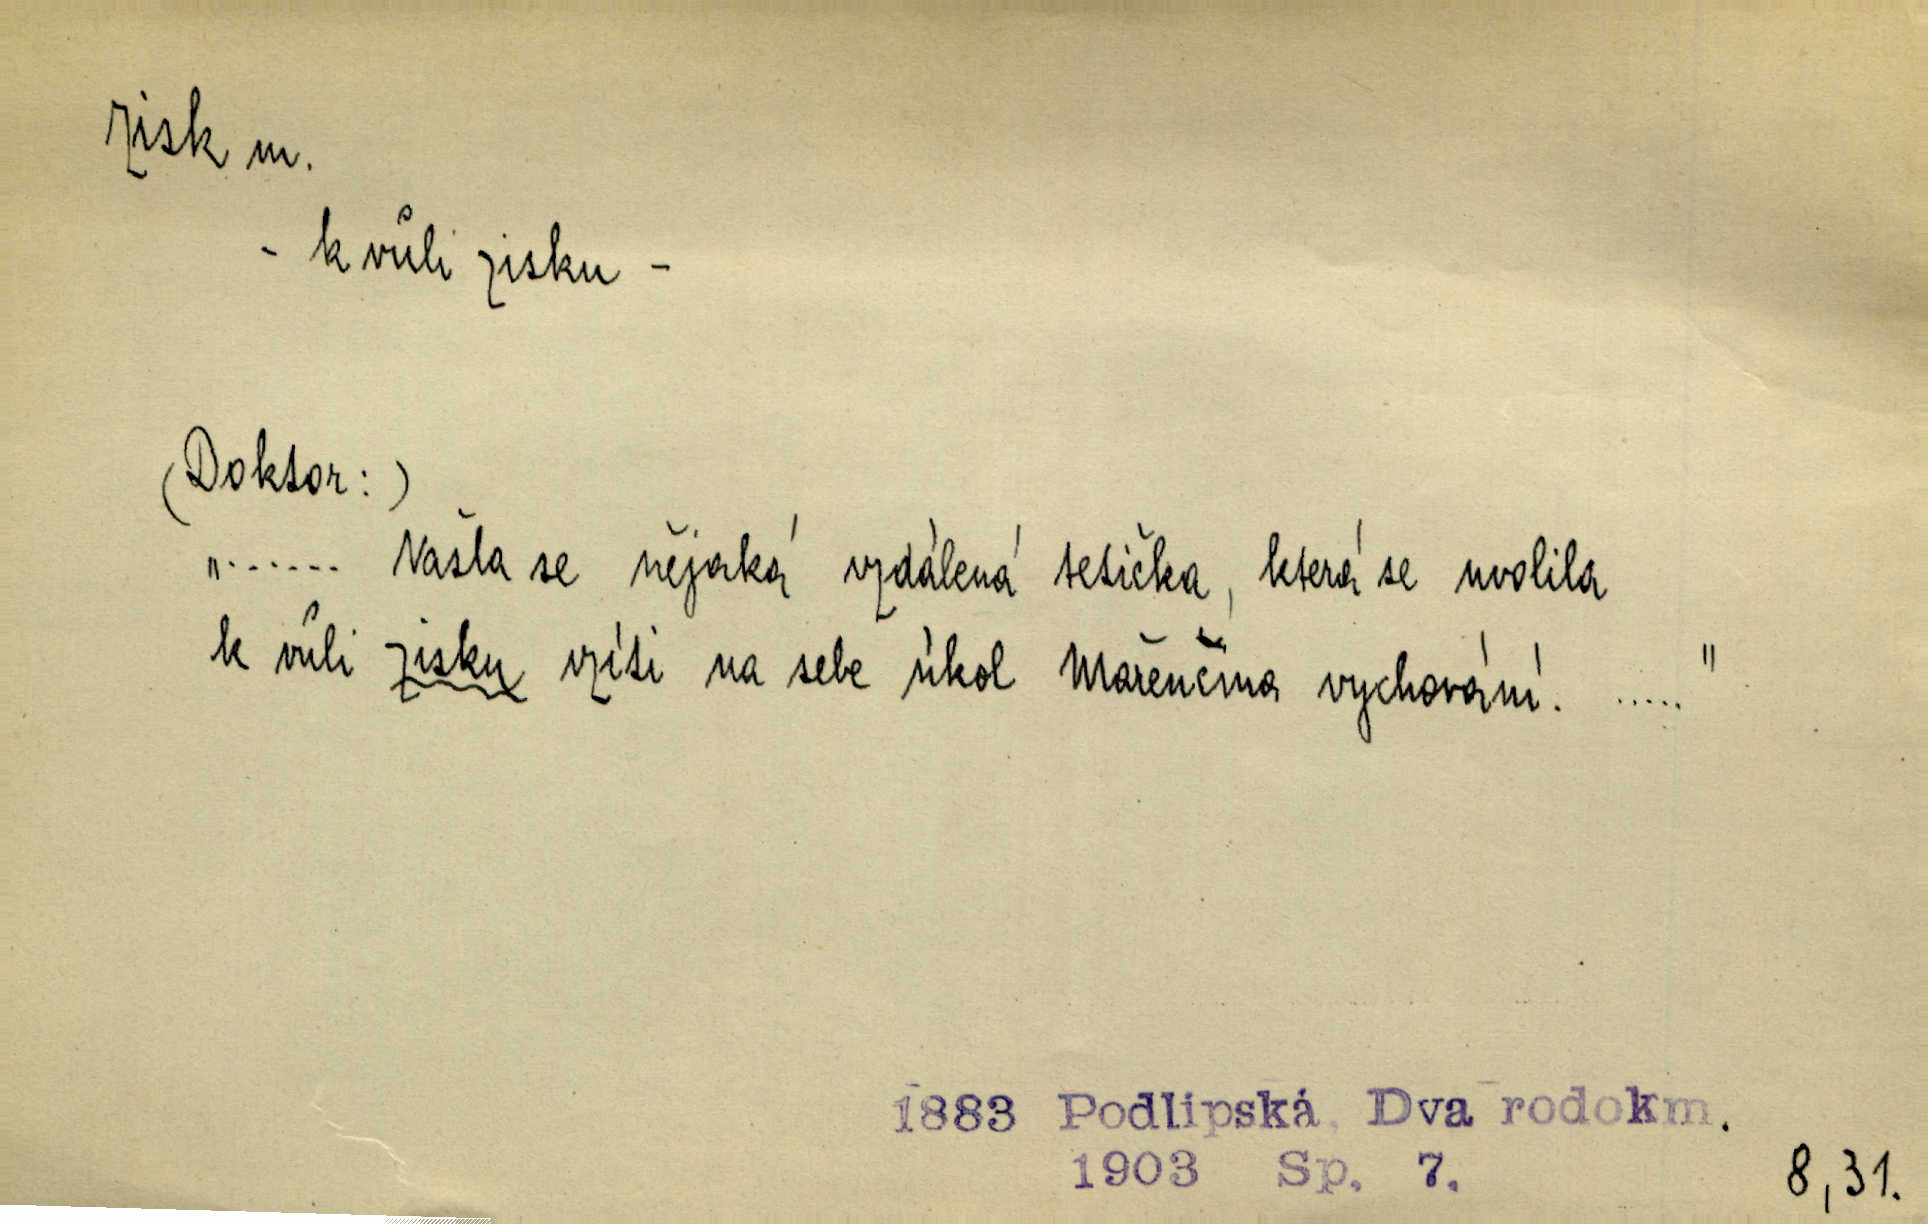 zisk m.
- k vůli zisku -
(Doktor:)
"....... Našla se nějaká vzdálená tetička, která se uvolila
k vůli zisku vzíti na sebe úkol Mařenčina vychování. ....."
1883 Podlipská, Dva rodokm.
1903 Sp. 7.
8,31.